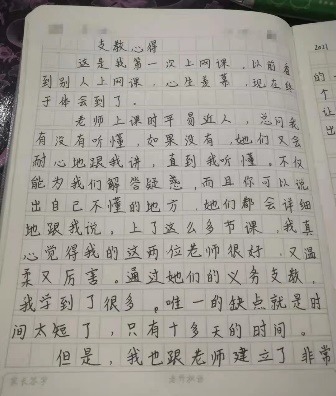 支教心得
这是我第一次上网课，以前看
到别人上网课，心生羡慕，现在终
于体会到了。
老师上课时平易近人，总问我
有没有听懂，如果没有，她们又会
耐心地跟我讲，直到我听懂。不仅
能为我们解答疑惑，而且你可以说
出自己不懂的地方，她们都会详细
地跟我说，上了这么多节课，我真
心觉得我的这两位老师很好，又温
柔又厉害。通过她们的义务支教，
我学到了很多。唯一的缺点就是时
间太短了，只有十多天的时间。
但是，我也跟老师建立了非常
2021
的一
个
让
出